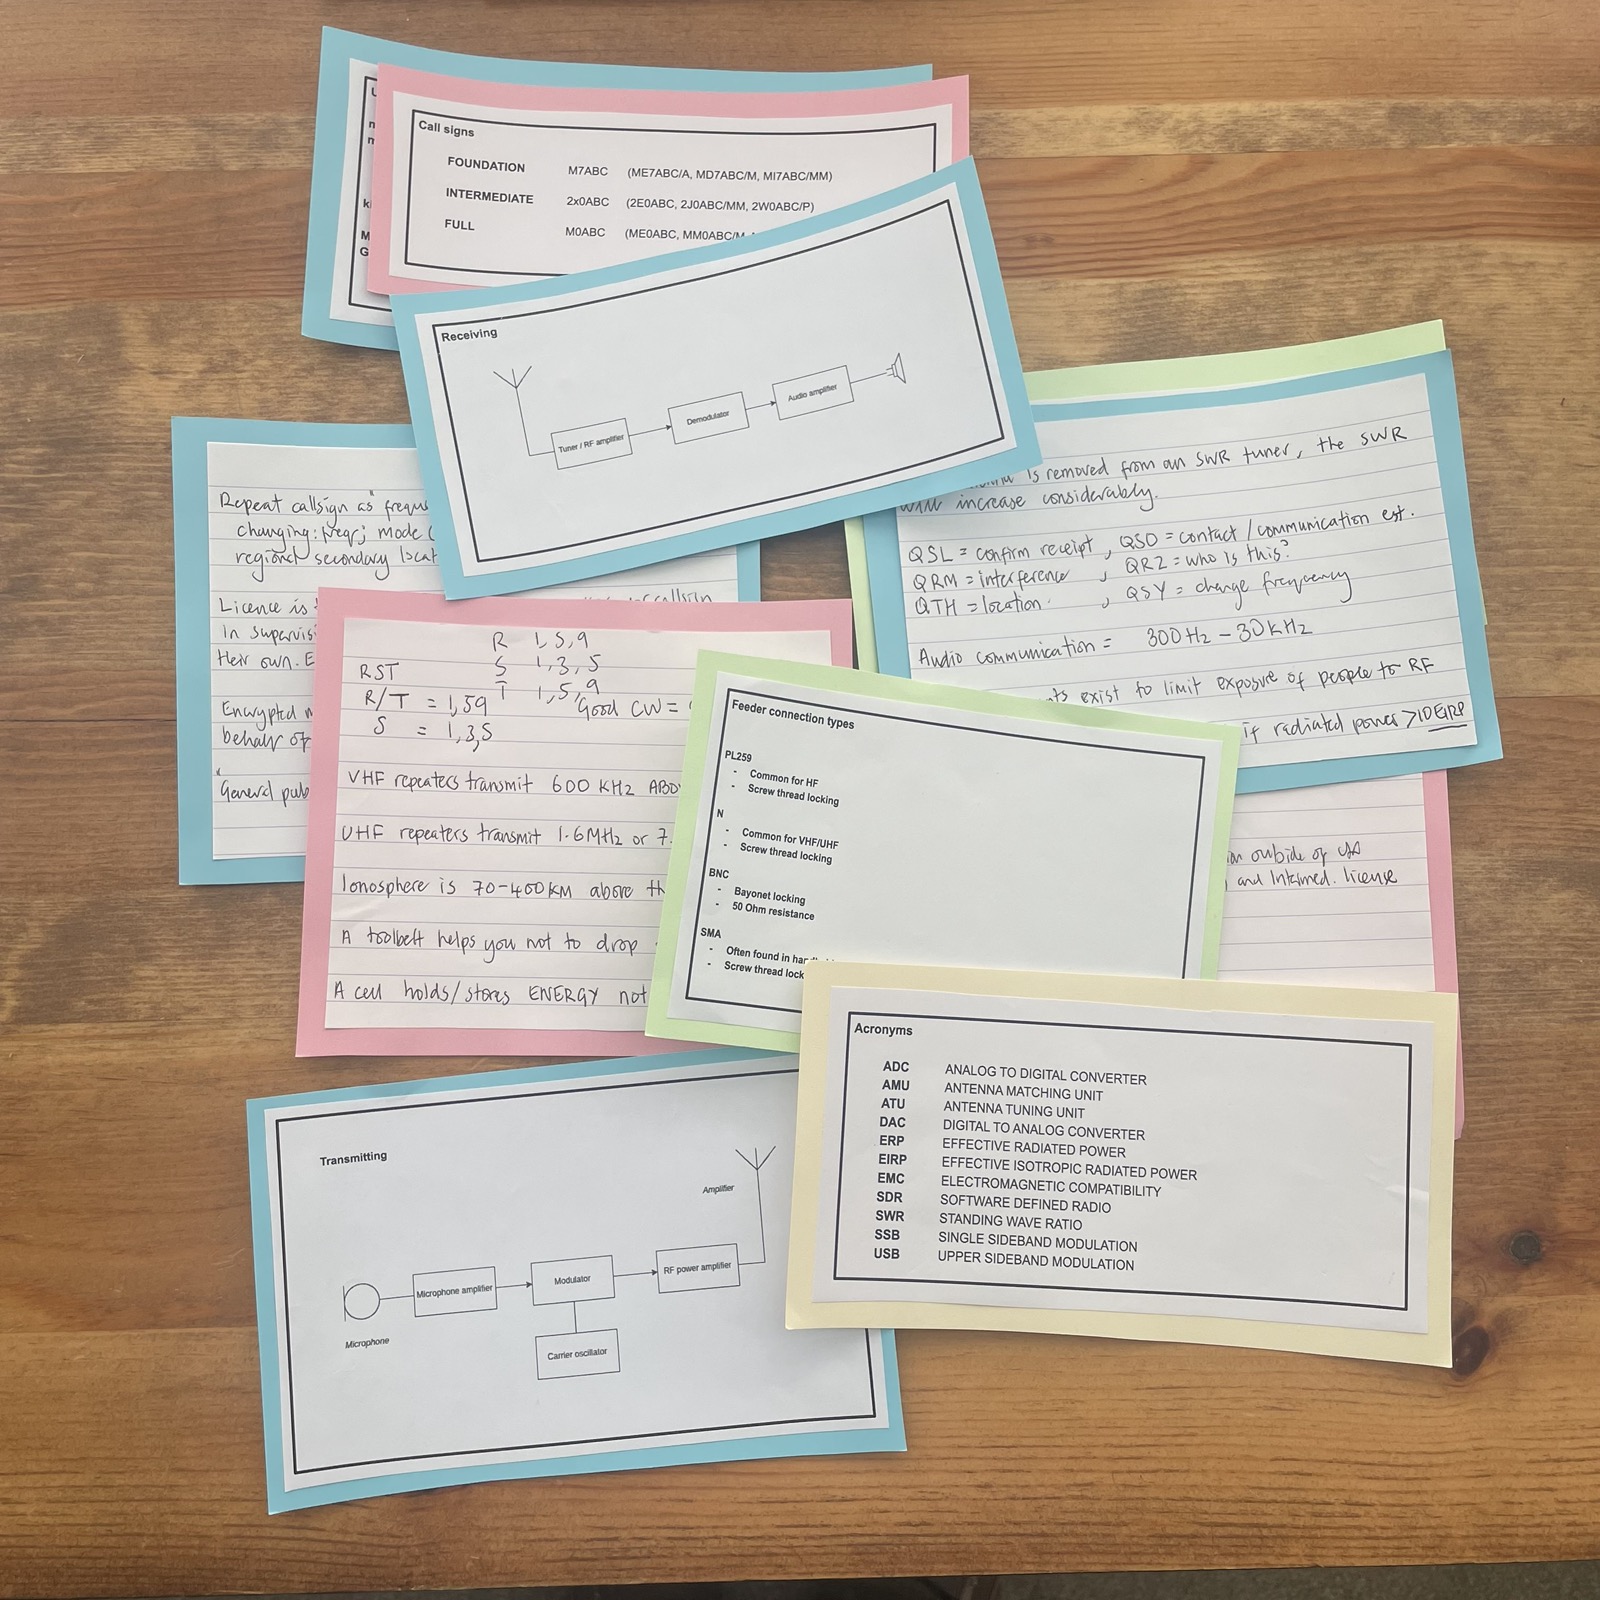 U
n
m
k
M
G
Call signs
FOUNDATION M7ABC (ME7ABC/A, MD7ABC/M, MI7ABC/MM)
INTERMEDIATE 2x0ABC (2E0ABC, 2J0ABC/MM, 2W0ABC/P)
FULL M0ABC (ME0ABC, MM0ABC/M
Receiving
Tuner / RF amplifier
Demodulator
Audio amplifier
Repeat callsign as frequ
changing: freq; mode
regional secondary locat
Licence is
callsign
In supervis
their own. E
Encrypted m
behalf of
General pub
is removed from an SWR tuner, the SWR
will increase considerably.
QSL = confirm receipt , QSO = contact / communication est.
QRM = interference , QRZ = who is this?
QTH = location. , QSY = change frequency
Audio communication = 300Hz - 30KHz
ts exist to limit exposure of people to RF
if radiated power > 10 EIRP
R 1,5,9
S 1,3,5
T 1,5,9
RST
R/T = 1,59
S = 1,3,5
Good CW =
VHF repeaters transmit 600 KHz ABO
UHF repeaters transmit 1.6MHz or 7.
Ionosphere is 70-400KM above th
A toolbelt helps you not to drop
A cell holds/stores ENERGY not
Feeder connection types
PL259
- Common for HF
- Screw thread locking
N
- Common for VHF/UHF
- Screw thread locking
BNC
- Bayonet locking
- 50 Ohm resistance
SMA
- Often found in han
- Screw thread lock
outside of
and Intermed. license
Acronyms
ADC ANALOG TO DIGITAL CONVERTER
AMU ANTENNA MATCHING UNIT
ATU ANTENNA TUNING UNIT
DAC DIGITAL TO ANALOG CONVERTER
ERP EFFECTIVE RADIATED POWER
EIRP EFFECTIVE ISOTROPIC RADIATED POWER
EMC ELECTROMAGNETIC COMPATIBILITY
SDR SOFTWARE DEFINED RADIO
SWR STANDING WAVE RATIO
SSB SINGLE SIDEBAND MODULATION
USB UPPER SIDEBAND MODULATION
Transmitting
Amplifier
Microphone amplifier
Modulator
RF power amplifier
Microphone
Carrier oscillator